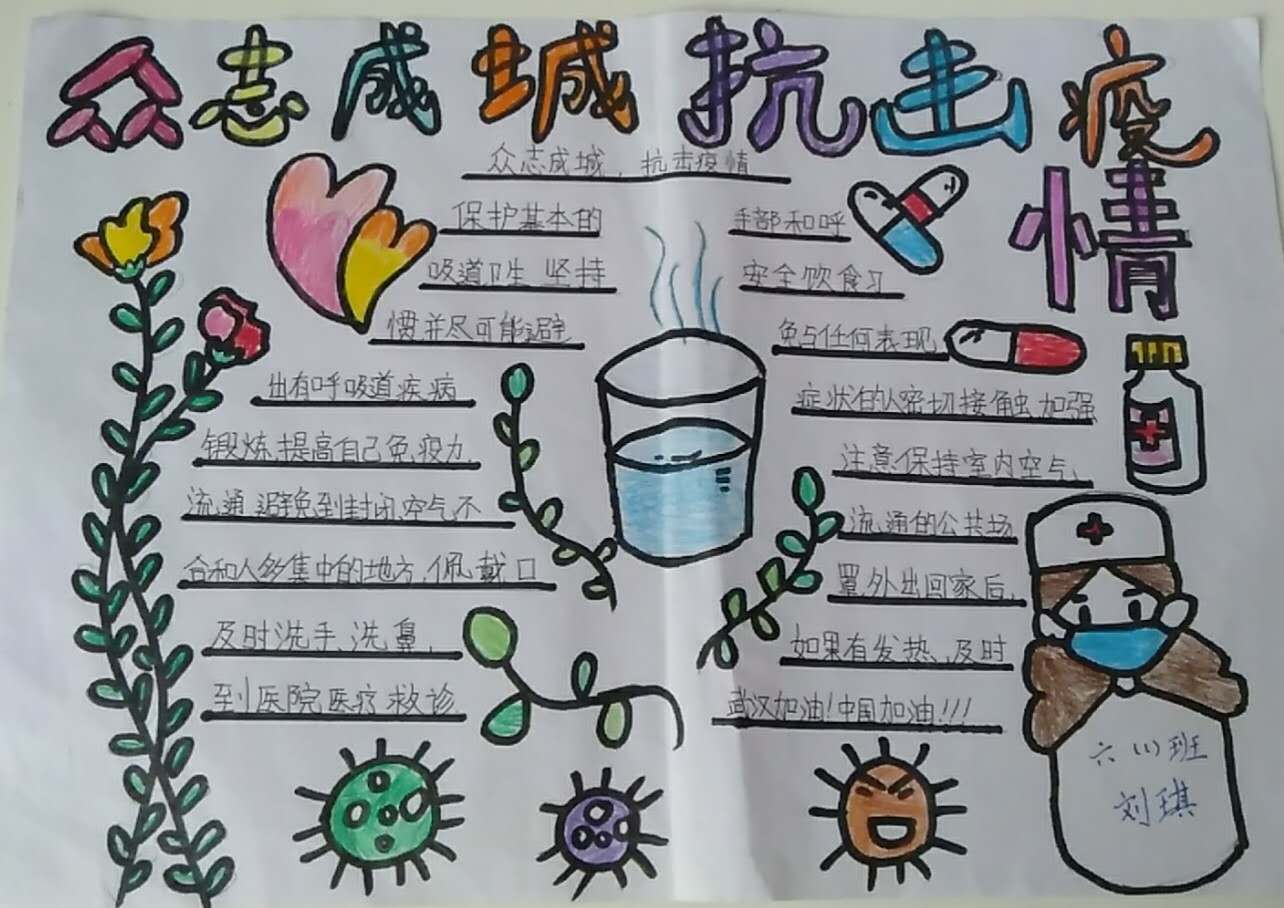 众志成城抗击疫情
众志成城，抗击疫情
保护基本的 手部和呼
吸道卫生 坚持 安全饮食习
惯并尽可能避 免与任何表现
出有呼吸道疾病 症状的人密切接触,加强
锻炼,提高自己免疫力, 注意保持室内空气,
流通,避免到封闭,空气不 流通的公共场
合和人多集中的地方,佩戴口 罩,外出回家后,
及时洗手、洗鼻, 如果有发热,及时
到医院医疗救诊 武汉加油!中国加油!!!
六(1)班
刘琪